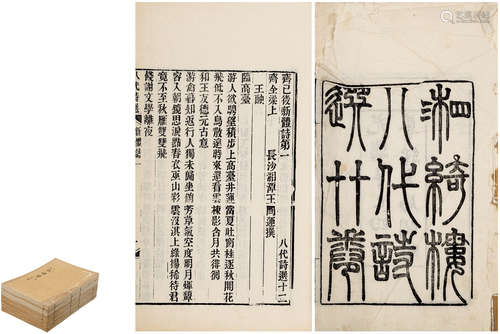 齊已後新體詩第一 八代詩選十二
齊全梁上 長沙湘潭王闓運撰
王融
臨高臺
游人欲騁望積步上高臺井蓮當夏吐窗桂逐秋開花
飛低不入鳥散遠時來還看雲棟影含月共徘徊
和王友德元古意
游禽暮知返行人獨未歸坐銷芳草氣空度明月輝嚬
容入朝鏡思淚點春衣巫山彩雲沒淇上綠楊稀待君
竟不至秋雁雙雙飛
餞謝文學離夜
湘綺樓
八代詩
選廿卷